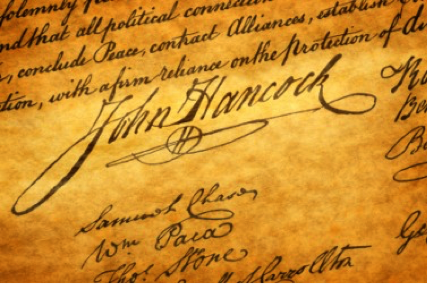 solemnly
and that all political connection
conclude Peace, contract Alliances, establish
with a firm reliance on the protection of
John Hancock
Samuel Chase
Wm Paca
Thos Stone
Carrollton